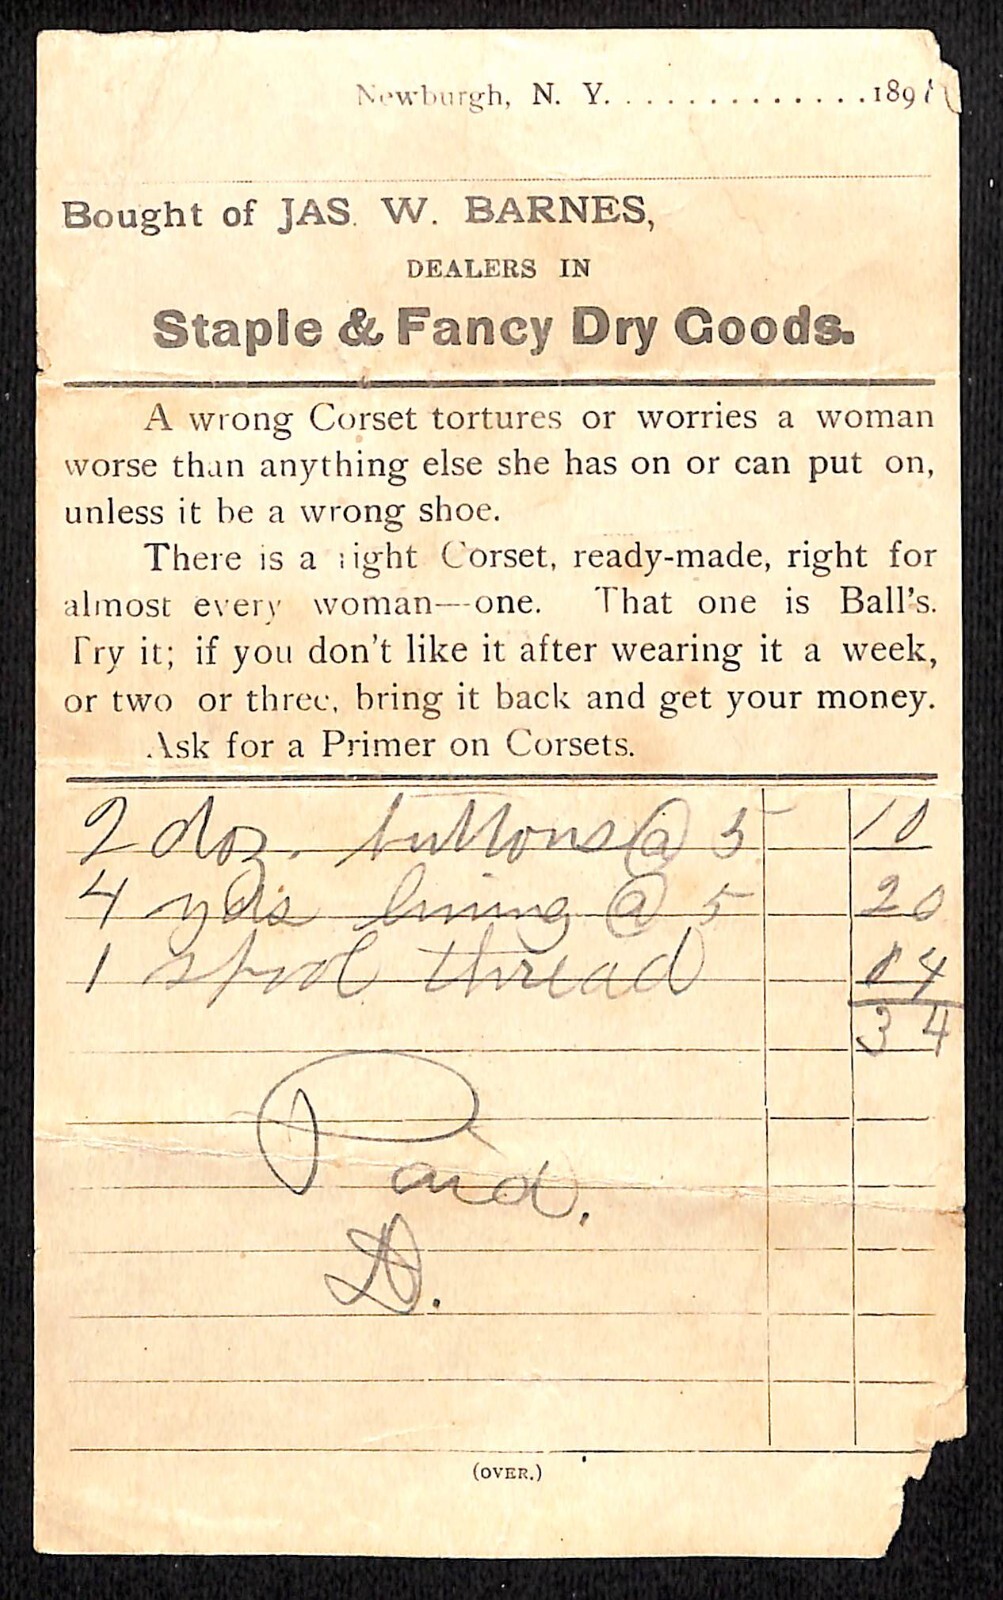 Newburgh, N. Y. . . . . . . . . . . . . . .189
Bought of JAS. W. BARNES,
DEALERS IN
Staple & Fancy Dry Goods.
A wrong Corset tortures or worries a woman
worse than anything else she has on or can put on,
unless it be a wrong shoe.
There is a right Corset, ready-made, right for
almost every woman—one. That one is Ball's.
Try it; if you don't like it after wearing it a week,
or two or three, bring it back and get your money.
Ask for a Primer on Corsets.
2 doz. buttons @ 5 10
4 yds lining @ 5 20
1 spool thread 04
34
Paid.
D.
(OVER.)